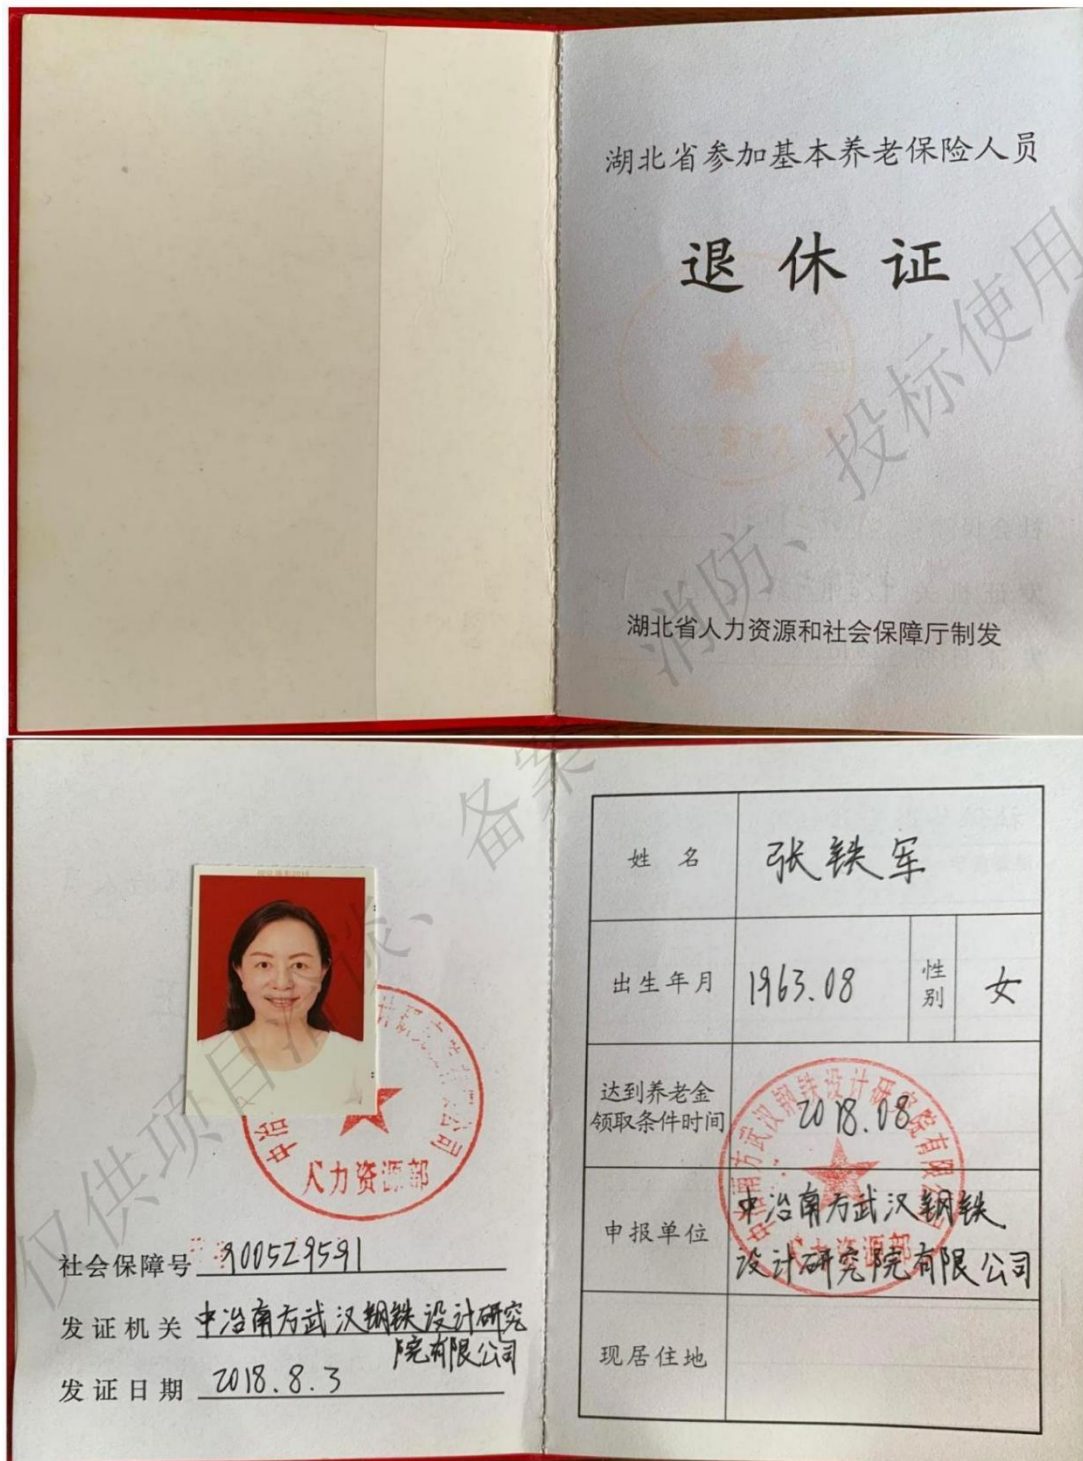 湖北省参加基本养老保险人员
退休证
湖北省人力资源和社会保障厅制发
仅供项目洽谈、备案、消防、投标使用
人力资源部
社会保障号 900529591
发证机关 中冶南方武汉钢铁设计研究
院有限公司
发证日期 2018.8.3
姓名 张铁军
出生年月 1963.08 性别 女
达到养老金
领取条件时间 2018.08
中冶南方武汉钢铁设计研究院有限公司
人力资源部
申报单位 中冶南方武汉钢铁
设计研究院有限公司
现居住地